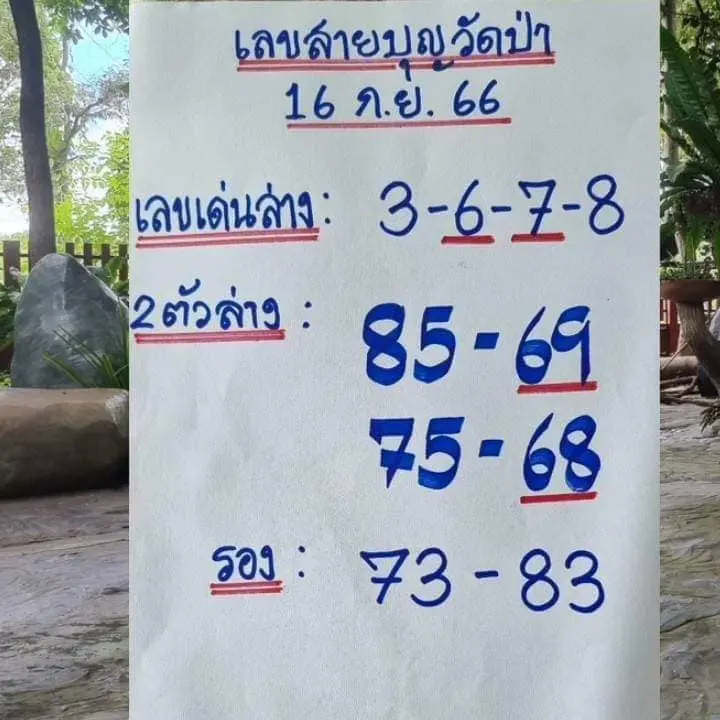 เลขสายบุญวัดป่า
16 ก.ย. 66
เลขเด่นล่าง: 3-6-7-8
2ตัวล่าง : 85-69
75-68
รอง : 73-83